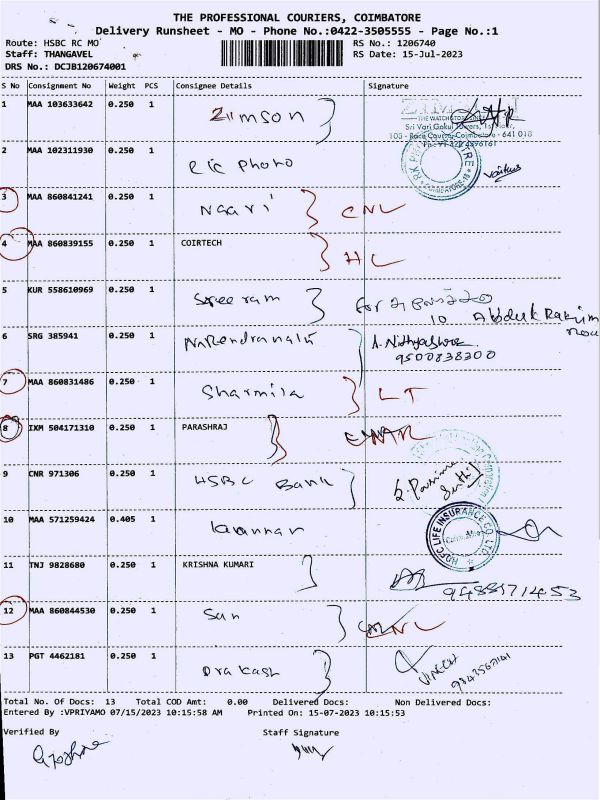 THE PROFESSIONAL COURIERS, COIMBATORE
Delivery Runsheet - MO - Phone No.:0422-3505555 - Page No.:1
Route: HSBC RC MO RS No.: 1206740
Staff: THANGAVEL RS Date: 15-Jul-2023
DRS No.: DCJB120674001
S No Consignment No Weight PCS Consignee Details Signature
1 MAA 103633642 0.250 1 Zimson
THE WATCH STORE
Sri Vari Gokul Towers, 1st Floor,
108 - Race Course, Coimbatore - 641 018
2 MAA 102311930 0.250 1 Photo
COIMBATORE-18
3 MAA 860841241 0.250 1 Naari CNL
4 MAA 860839155 0.250 1 COIRTECH HC
5 KUR 558610969 0.250 1 Sree ram for
10 Abdul Rakim
6 SRG 385941 0.250 1 Narendranath
9500838300
7 MAA 860831486 0.250 1 Sharmila LT
8 IXM 504171310 0.250 1 PARASHRAJ
9 CNR 971306 0.250 1 HSBC Bank
10 MAA 571259424 0.405 1 Kannan
HDFC LIFE INSURANCE CO. LTD.
11 TNJ 9828680 0.250 1 KRISHNA KUMARI
12 MAA 860844530 0.250 1 San CNL
13 PGT 4462181 0.250 1 Prakash
Total No. Of Docs: 13 Total COD Amt: 0.00 Delivered Docs: Non Delivered Docs:
Entered By :VPRIYAMO 07/15/2023 10:15:58 AM Printed On: 15-07-2023 10:15:53
Verified By Staff Signature